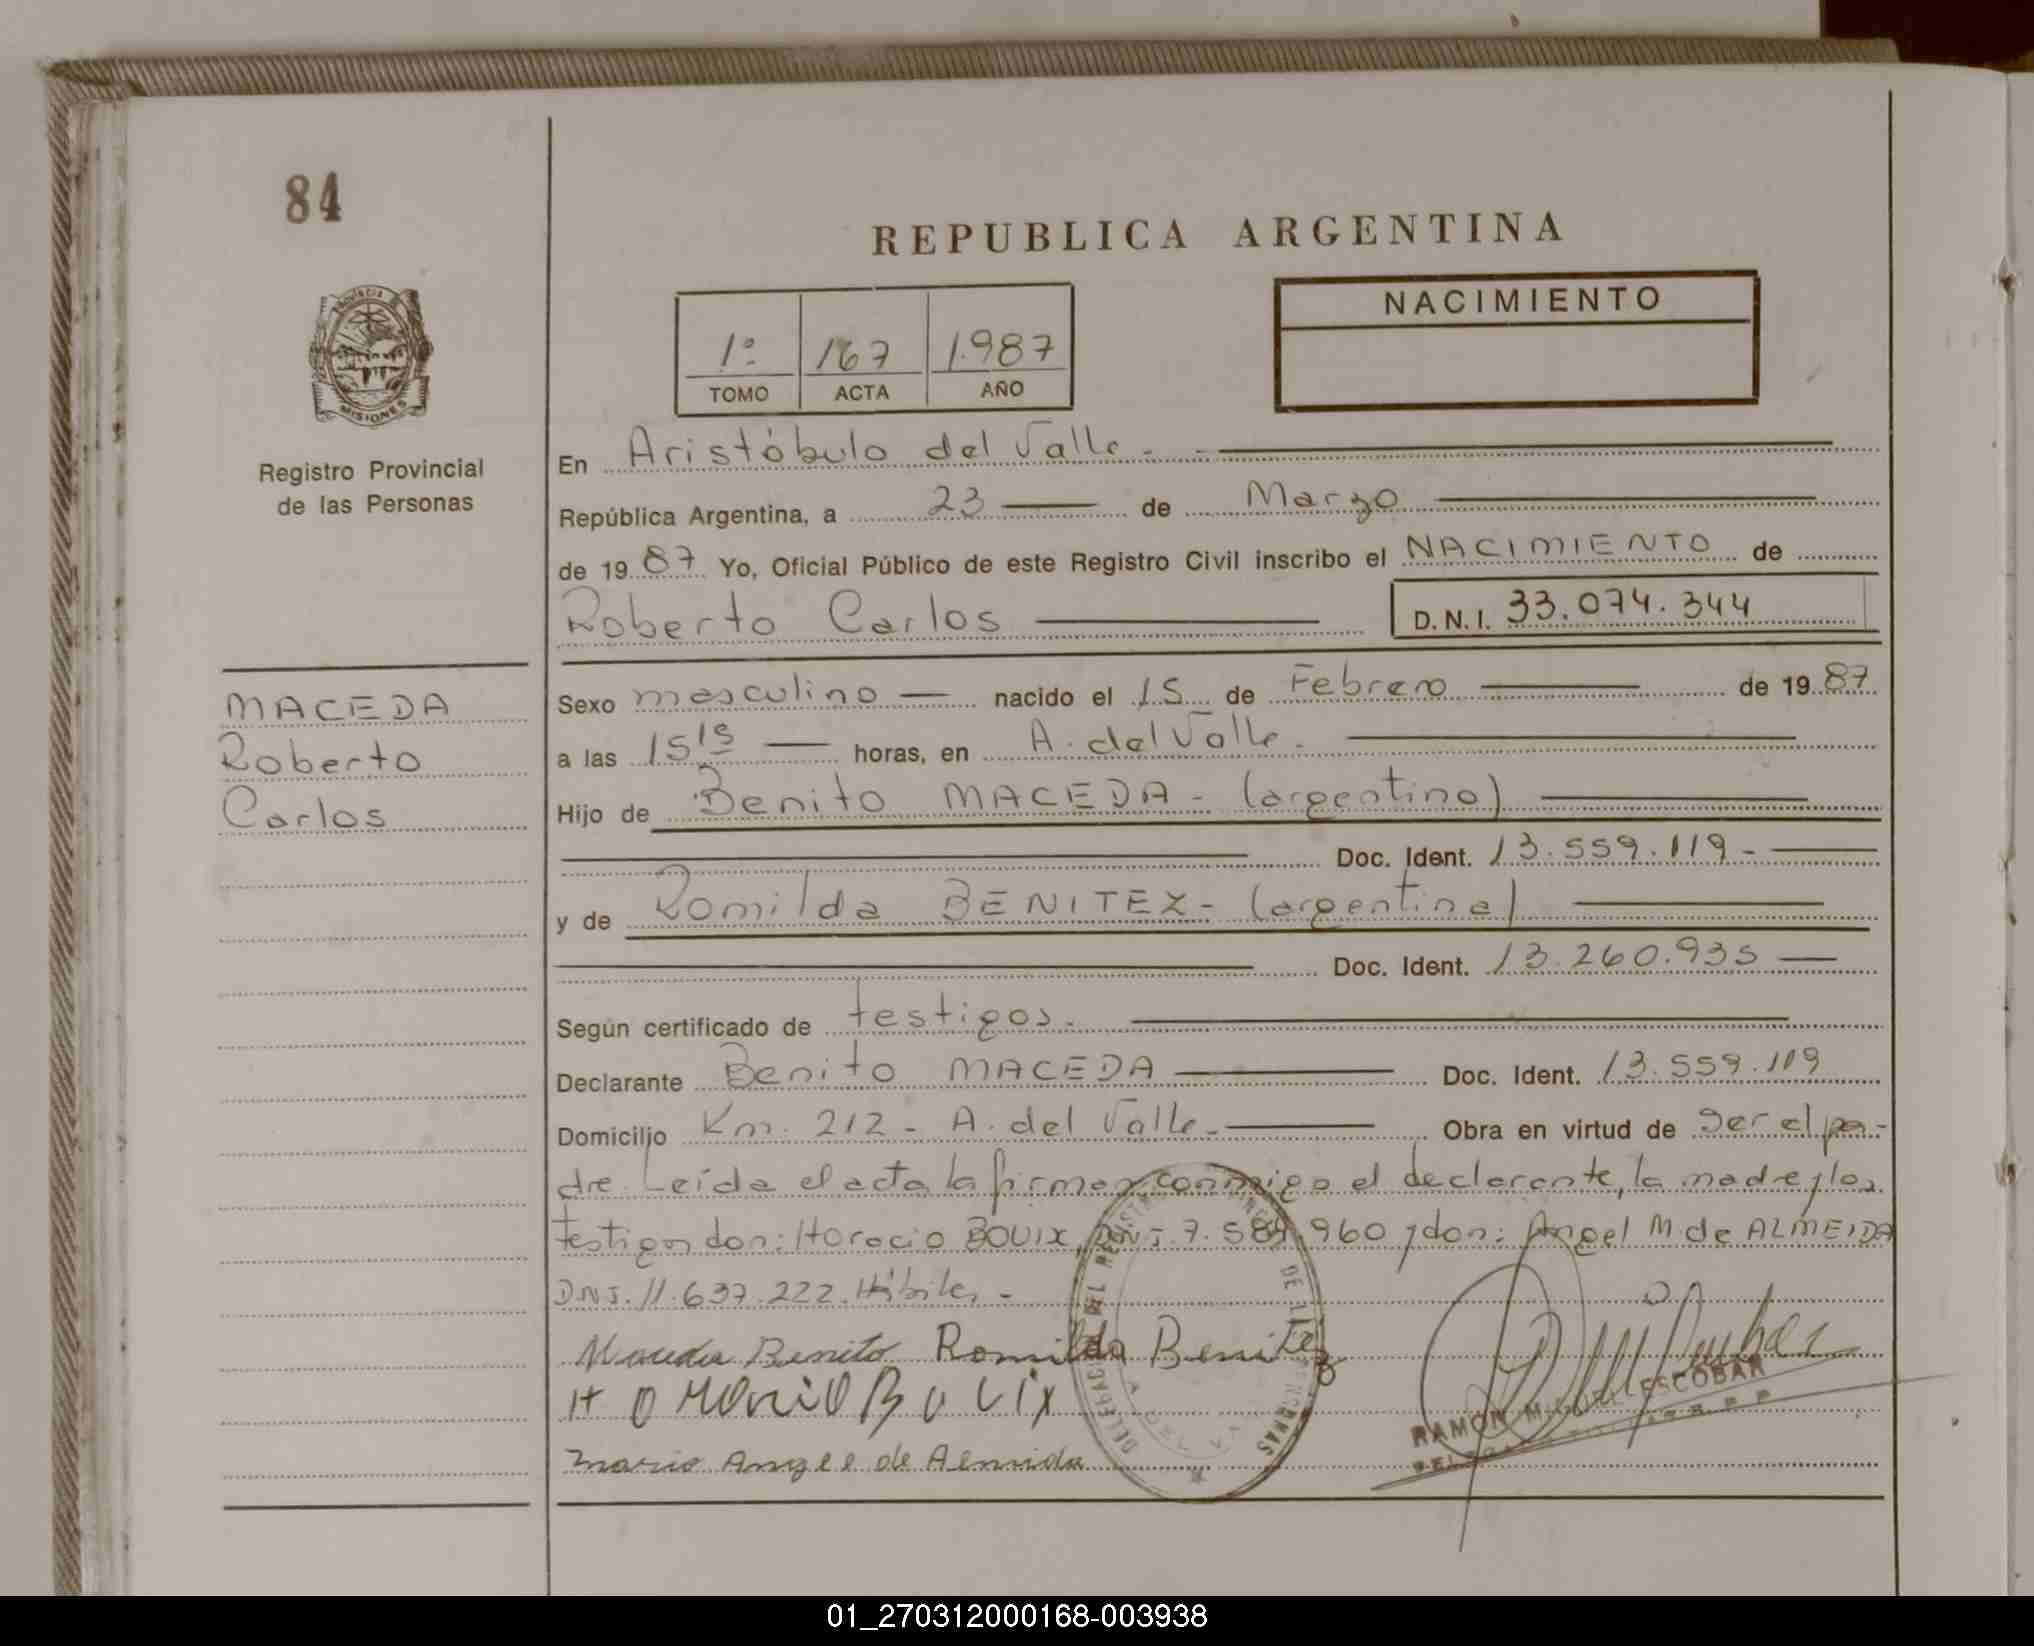 84
REPUBLICA ARGENTINA
PROVINCIA
MISIONES
Registro Provincial
de las Personas
1º 167 1.987
TOMO ACTA AÑO
NACIMIENTO
En Aristóbulo del Valle.-
República Argentina, a 23 de Marzo
de 1987 Yo, Oficial Público de este Registro Civil inscribo el NACIMIENTO de
Roberto Carlos D.N.I. 33.074.344
MACEDA
Roberto
Carlos
Sexo masculino nacido el 15 de Febrero de 1987
a las 15 15 horas, en A. del Valle.
Hijo de Benito MACEDA - (argentino)
Doc. Ident. 13.559.119.-
y de Romilda BENITEX - (argentina)
Doc. Ident. 13.260.935
Según certificado de testigos.
Declarante Benito MACEDA Doc. Ident. 13.559.119
Domicilio Km. 212 - A. del Valle.- Obra en virtud de ser el pa-
dre. Leída el acta la firman conmigo el declarante, la madre y los
testigos don: Horacio BOUIX, DNI. 7.584.960 y don: Angel M. de ALMEIDA
DNI. 11.637.222. Hábiles.-
Maceda Benito Romilda Benitez
Horacio Bouix
Mario Angel de Almeida
RAMON MIGUEL ESCOBAR
01_270312000168-003938